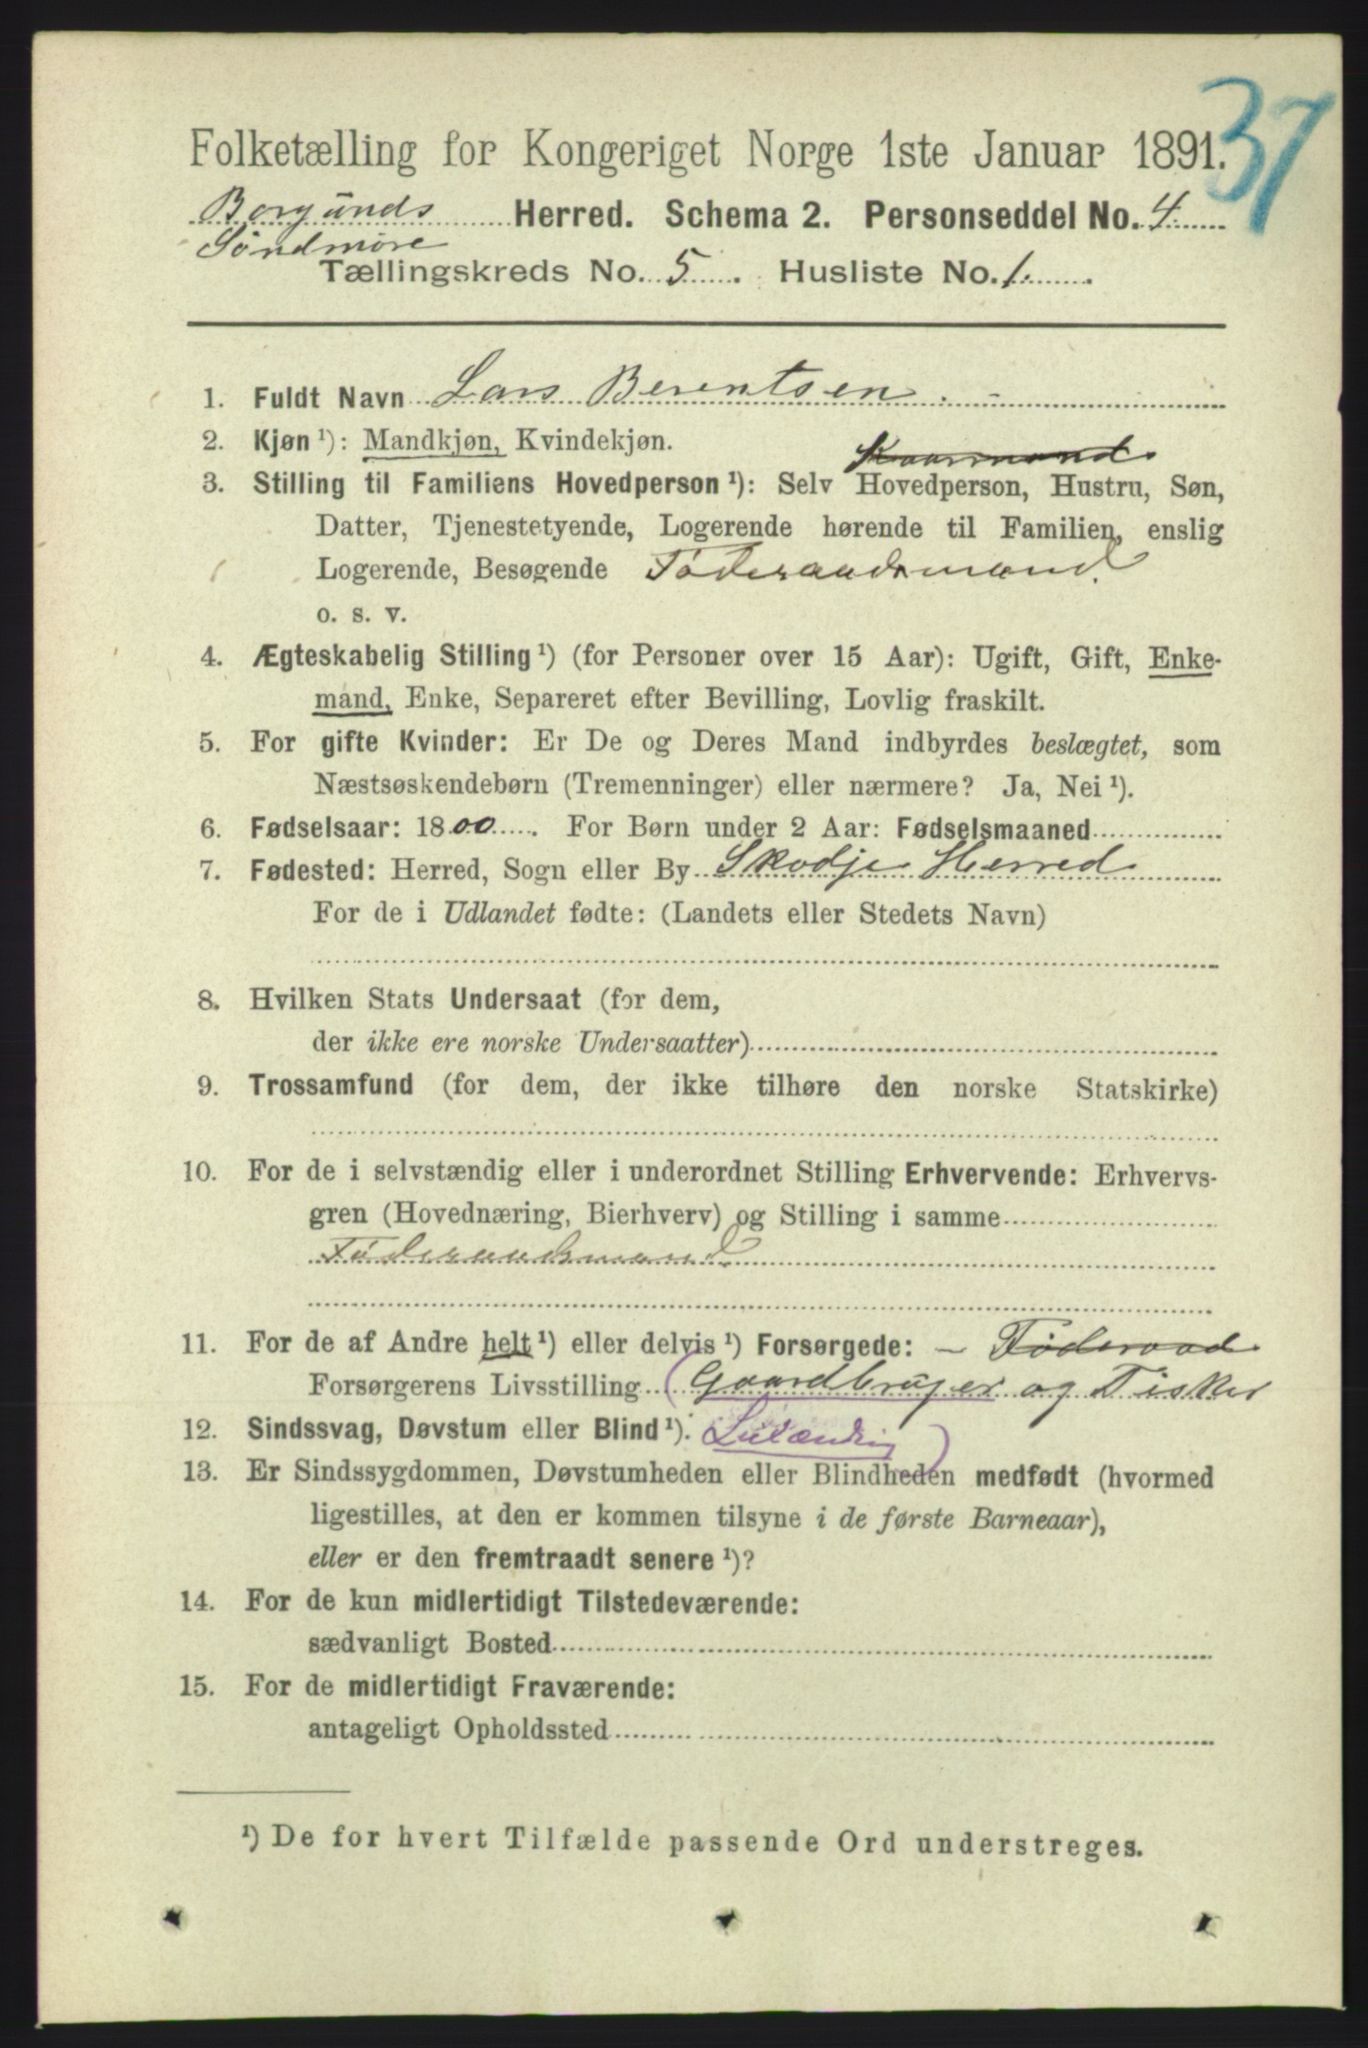 37
Folketælling for Kongeriget Norge 1ste Januar 1891.
Borgunds Herred. Schema 2. Personseddel No. 4
Søndmøre
Tællingskreds No. 5. Husliste No. 1.
1. Fuldt Navn Lars Berentsen.
2. Kjøn ¹): Mandkjøn, Kvindekjøn.
Kaarmand
3. Stilling til Familiens Hovedperson ¹): Selv Hovedperson, Hustru, Søn,
Datter, Tjenestetyende, Logerende hørende til Familien, enslig
Logerende, Besøgende Føderaadsmand.
o. s. v.
4. Ægteskabelig Stilling ¹) (for Personer over 15 Aar): Ugift, Gift, Enke-
mand, Enke, Separeret efter Bevilling, Lovlig fraskilt.
5. For gifte Kvinder: Er De og Deres Mand indbyrdes beslægtet, som
Næstsøskendebørn (Tremenninger) eller nærmere? Ja, Nei ¹).
6. Fødselsaar: 1800. For Børn under 2 Aar: Fødselsmaaned
7. Fødested: Herred, Sogn eller By Skodje Herred
For de i Udlandet fødte: (Landets eller Stedets Navn)
8. Hvilken Stats Undersaat (for dem,
der ikke ere norske Undersaatter)
9. Trossamfund (for dem, der ikke tilhøre den norske Statskirke)
10. For de i selvstændig eller i underordnet Stilling Erhvervende: Erhvervs-
gren (Hovednæring, Bierhverv) og Stilling i samme
Føderaadsmand
11. For de af Andre helt ¹) eller delvis ¹) Forsørgede: – Føderaad
Forsørgerens Livsstilling (Gaardbruger og Fisker
12. Sindssvag, Døvstum eller Blind ¹).
13. Er Sindssygdommen, Døvstumheden eller Blindheden medfødt (hvormed
ligestilles, at den er kommen tilsyne i de første Barneaar),
eller er den fremtraadt senere ¹)?
14. For de kun midlertidigt Tilstedeværende:
sædvanligt Bosted
15. For de midlertidigt Fraværende:
antageligt Opholdssted
¹) De for hvert Tilfælde passende Ord understreges.